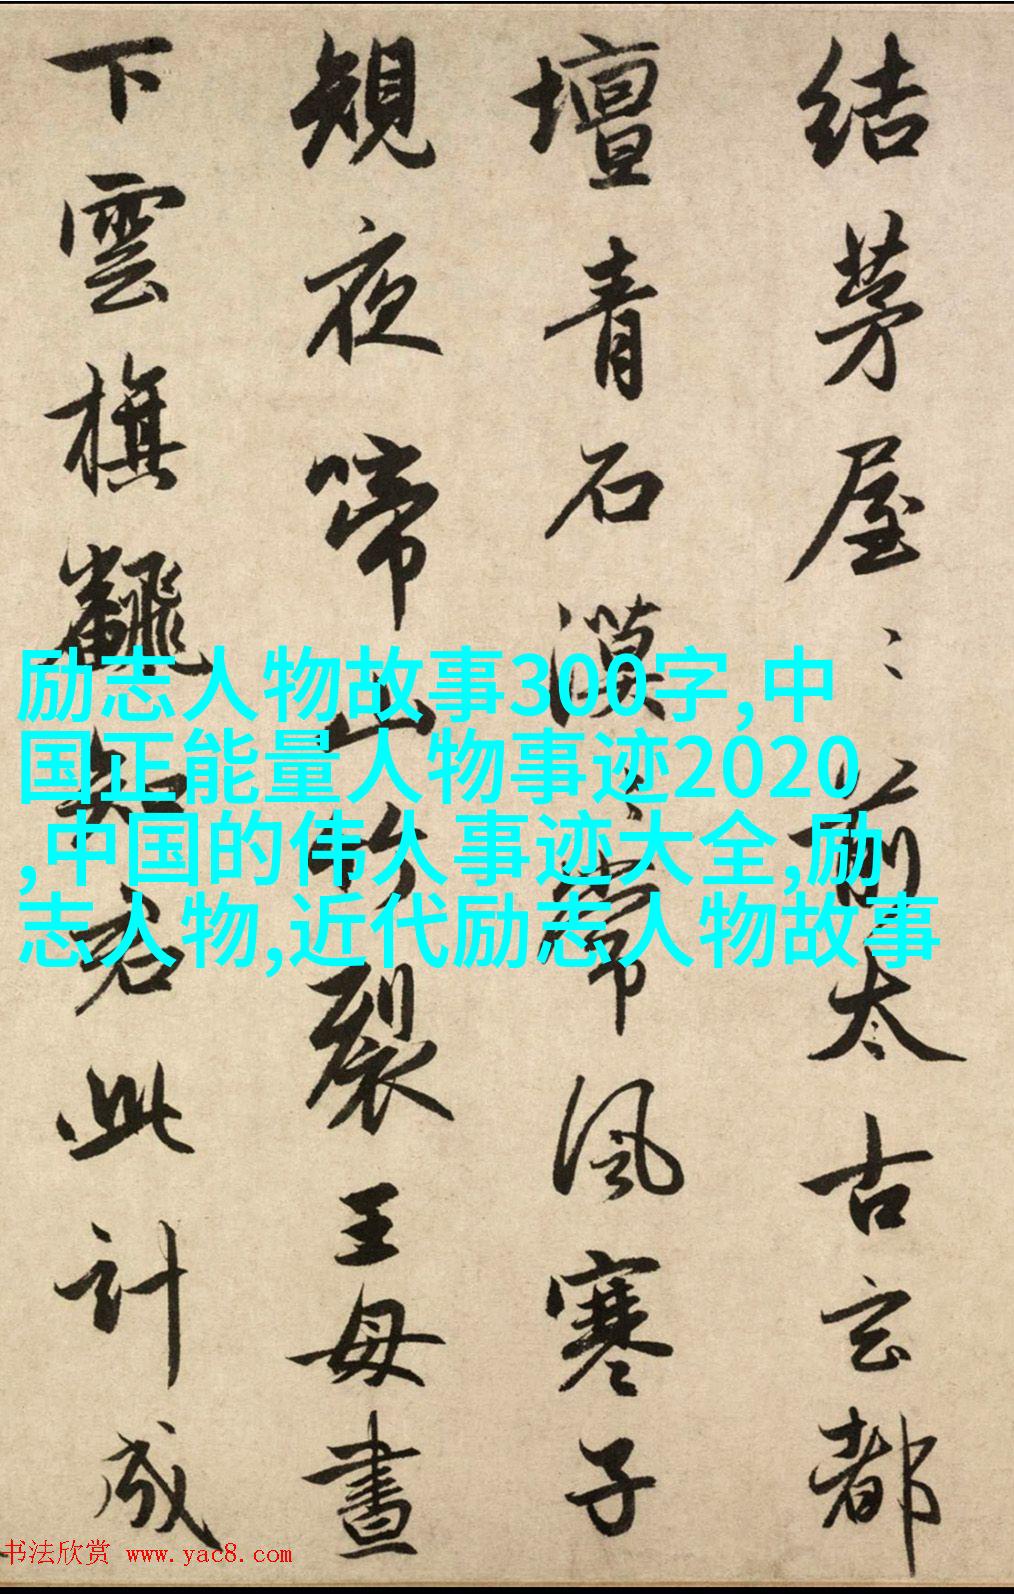 結茅屋：前太古玄都
壇青石漠：常風寒子
規夜啼山竹裂王母晝
下雲旗飜知君此計成
励志人物故事300字,中
国正能量人物事迹2020
,中国的伟人事迹大全,励
志人物,近代励志人物故事
书法欣赏 www.yac8.com